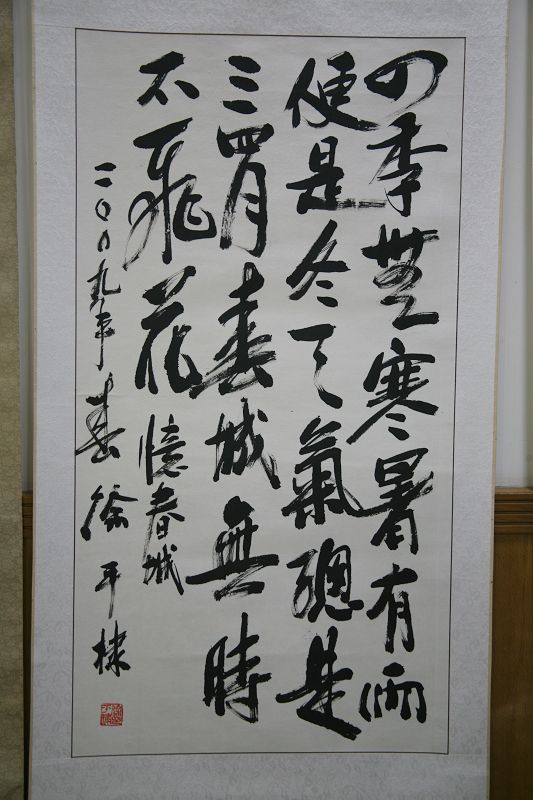 四季無寒暑有雨
便是冬天氣總是
三四月春城無時
不飛花 憶春城
二〇〇九年春 徐平棣